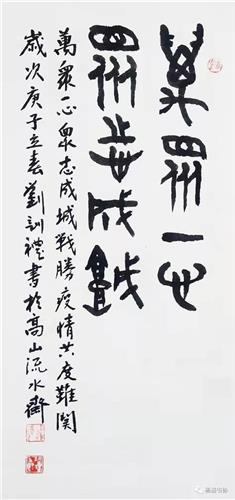 萬眾一心
眾志成城
萬眾一心眾志成城戰勝疫情共度難關
歲次庚子立春劉訓禮書於高山流水齋